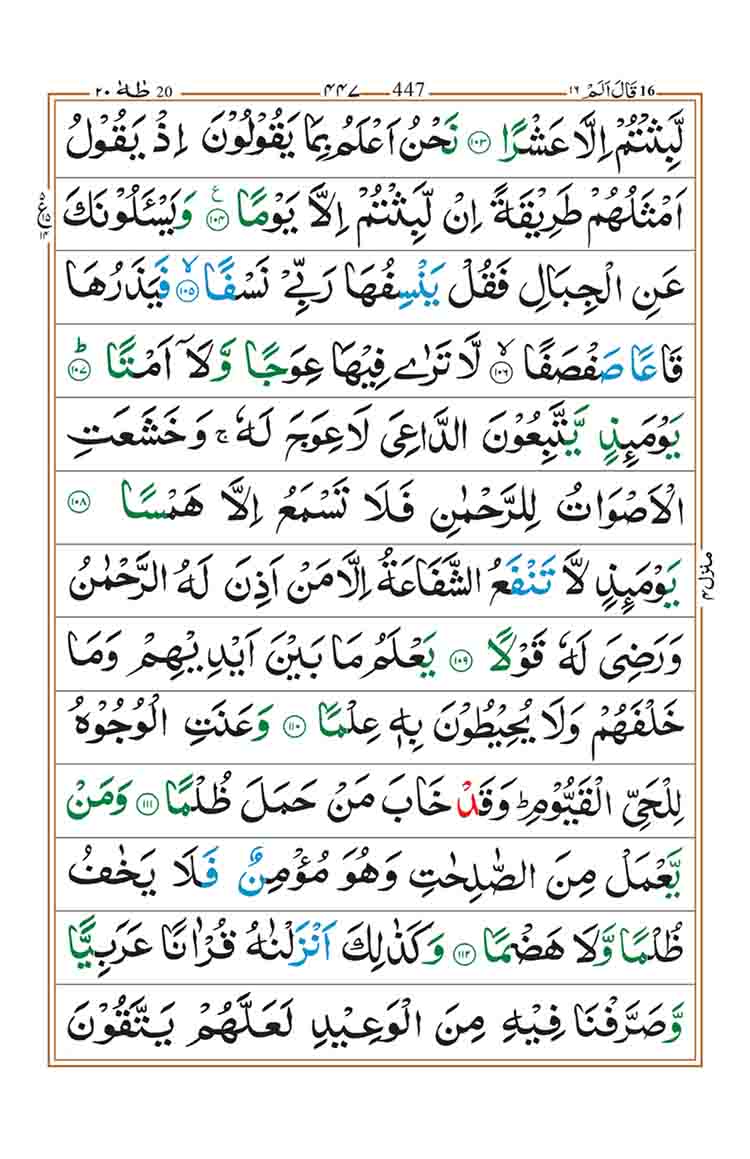 16 قَالَ اَلَمْ ١٦ 447 ٤٤٧ 20 طٰهٰ ٢٠
لَّبِثْتُمْ اِلَّا عَشْرًا ۝١٠٣ نَحْنُ اَعْلَمُ بِمَا يَقُوْلُوْنَ اِذْ يَقُوْلُ
اَمْثَلُهُمْ طَرِيْقَةً اِنْ لَّبِثْتُمْ اِلَّا يَوْمًا ۝١٠٤ ع وَيَسْـَٔلُوْنَكَ
عَنِ الْجِبَالِ فَقُلْ يَنْسِفُهَا رَبِّيْ نَسْفًا ۝١٠٥ ۙ فَيَذَرُهَا
قَاعًا صَفْصَفًا ۝١٠٦ ۙ لَّا تَرٰى فِيْهَا عِوَجًا وَّلَاۤ اَمْتًا ۝١٠٧ ؕ
يَوْمَىِٕذٍ يَّتَّبِعُوْنَ الدَّاعِىَ لَا عِوَجَ لَهٗ ۚ وَخَشَعَتِ
الْاَصْوَاتُ لِلرَّحْمٰنِ فَلَا تَسْمَعُ اِلَّا هَمْسًا ۝١٠٨
يَوْمَىِٕذٍ لَّا تَنْفَعُ الشَّفَاعَةُ اِلَّا مَنْ اَذِنَ لَهُ الرَّحْمٰنُ
وَرَضِىَ لَهٗ قَوْلًا ۝١٠٩ يَعْلَمُ مَا بَيْنَ اَيْدِيْهِمْ وَمَا
خَلْفَهُمْ وَلَا يُحِيْطُوْنَ بِهٖ عِلْمًا ۝١١٠ وَعَنَتِ الْوُجُوْهُ
لِلْحَىِّ الْقَيُّوْمِ ؕ وَقَدْ خَابَ مَنْ حَمَلَ ظُلْمًا ۝١١١ وَمَنْ
يَّعْمَلْ مِنَ الصّٰلِحٰتِ وَهُوَ مُؤْمِنٌ فَلَا يَخٰفُ
ظُلْمًا وَّلَا هَضْمًا ۝١١٢ وَكَذٰلِكَ اَنْزَلْنٰهُ قُرْاٰنًا عَرَبِيًّا
وَّصَرَّفْنَا فِيْهِ مِنَ الْوَعِيْدِ لَعَلَّهُمْ يَتَّقُوْنَ
٥
ع ١٥
١٤
منزل ٤